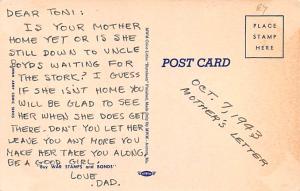 DEAR TONI:
IS YOUR MOTHER
HOME YET OR IS SHE
STILL DOWN TO UNCLE
BOYDS WAITING FOR
THE STORK? I GUESS
IF SHE ISN'T HOME YOU
WILL BE GLAD TO SEE
HER WHEN SHE DOES GET
THERE. DON'T YOU LET HER
LEAVE YOU ANY MORE YOU
MAKE HER TAKE YOU ALONG.
BE A GOOD GIRL.
LOVE,
DAD.
"Buy WAR STAMPS and BONDS"
POST CARD
PLACE
STAMP
HERE
OCT. 7, 1943
MOTHER'S LETTER